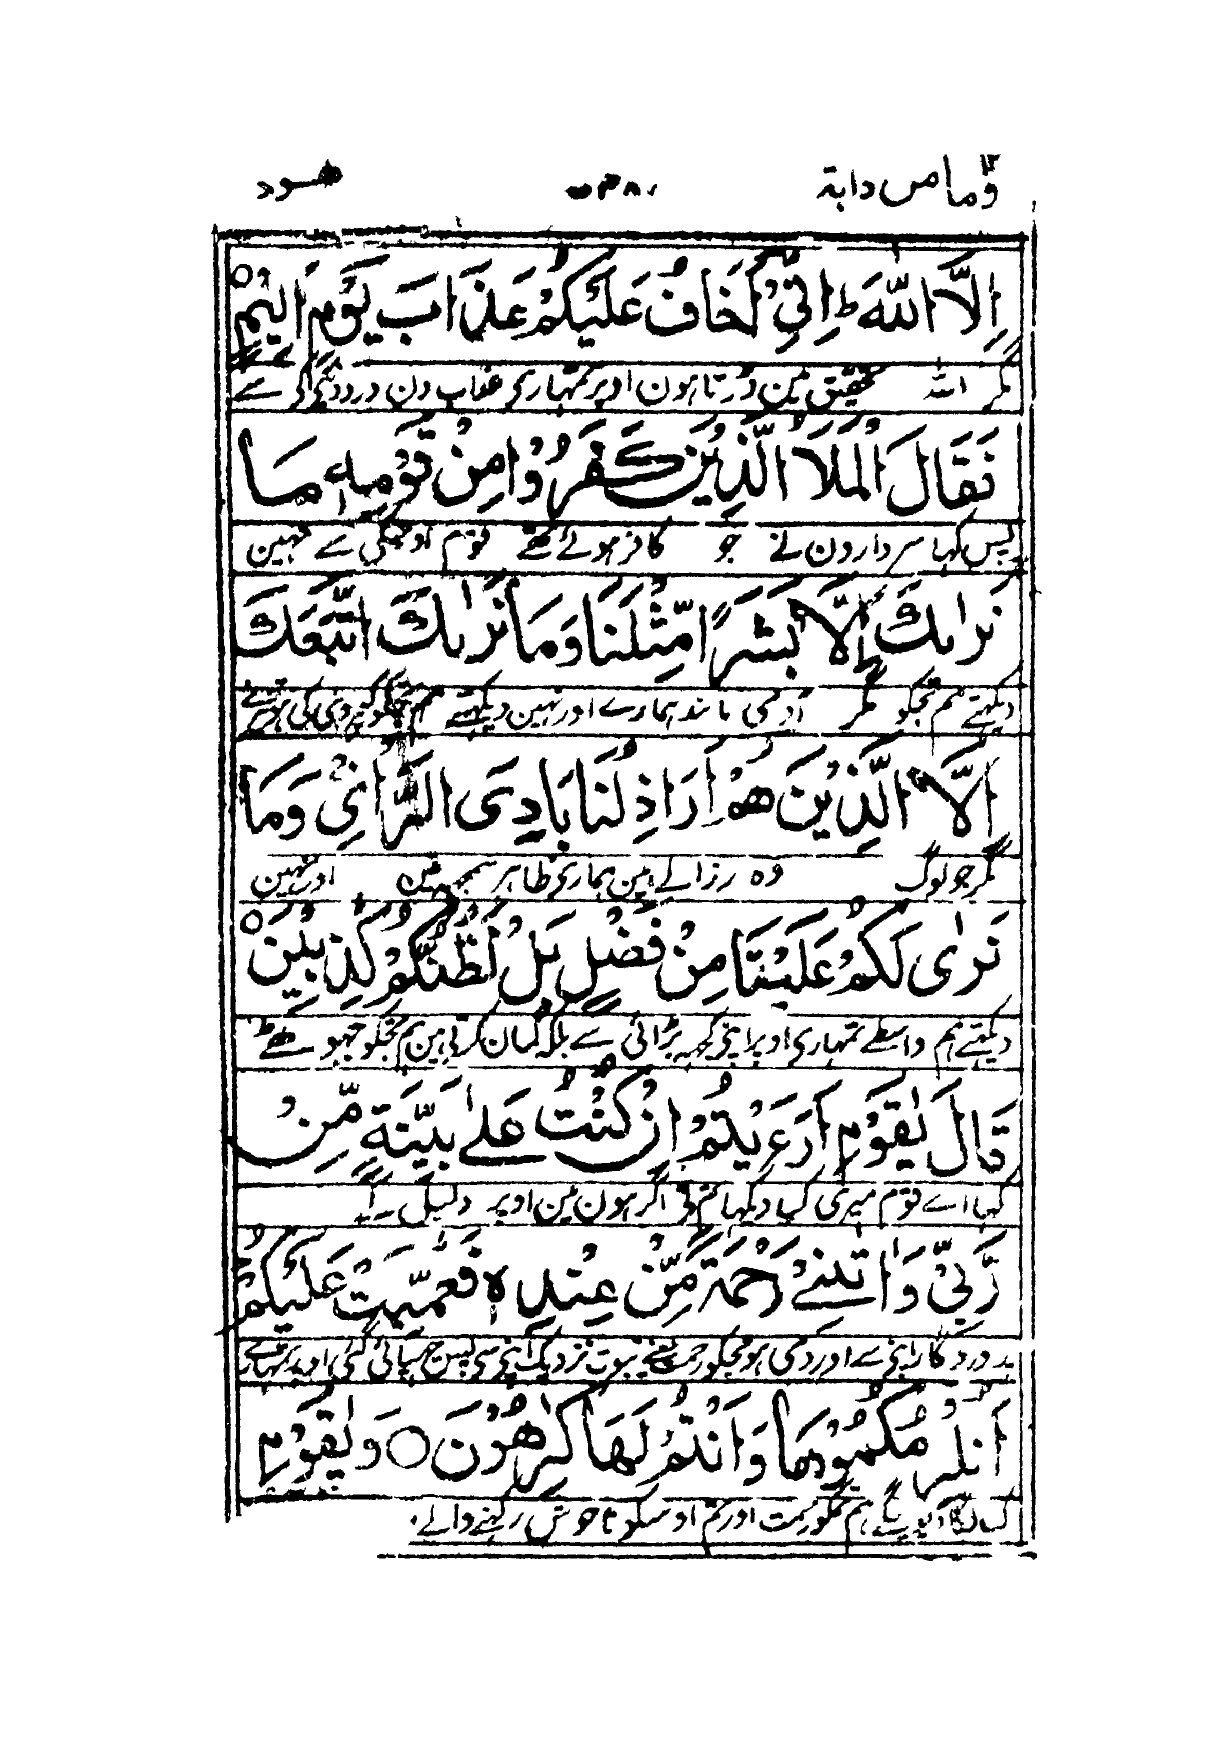 وما من دابة ۴۸۰ هود
اِلَّا اللّٰهَ ؕ اِنِّیْۤ اَخَافُ عَلَیْكُمْ عَذَابَ یَوْمٍ اَلِیْمٍ ○
مگر اللہ تحقیق مین ڈرتا ہون اوپر تمہاری عذاب دن درد دینی والی سے
فَقَالَ الْمَلَاُ الَّذِیْنَ كَفَرُوْا مِنْ قَوْمِهٖ مَا
پس کہا سردارون نے جو کافر ہوئے تھے قوم اوسکی سے نہین
نَرٰىكَ اِلَّا بَشَرًا مِّثْلَنَا وَمَا نَرٰىكَ اتَّبَعَكَ
دیکہتے ہم تجکو مگر آدمی مانند ہمارے اور نہین دیکہتے ہم تجکو کہ پیروی کی ہو تیری
اِلَّا الَّذِیْنَ هُمْ اَرَاذِلُنَا بَادِیَ الرَّاْیِ وَمَا
مگر جو لوگ وہ رزالے ہین ہماری ظاہر سمجہہ مین اور نہین
نَرٰی لَكُمْ عَلَیْنَا مِنْ فَضْلٍ بَلْ نَظُنُّكُمْ كٰذِبِیْنَ ○
دیکہتے ہم واسطے تمہاری اوپر اپنی کچہہ بڑائی سے بلکہ گمان کرتی ہین ہم تمکو جہوٹھے
قَالَ یٰقَوْمِ اَرَءَیْتُمْ اِنْ كُنْتُ عَلٰی بَیِّنَةٍ مِّنْ
کہا اے قوم میری کیا دیکہا تم نی اگر ہون مین اوپر دلیل کے
رَّبِّیْ وَاٰتٰىنِیْ رَحْمَةً مِّنْ عِنْدِهٖ فَعُمِّیَتْ عَلَیْكُمْ
پروردگار اپنی سے اور دی ہو مجکو رحمت یعنے نبوت نزدیک اپنی سی پس چہپائی گئی اوپر تمہارے
اَنُلْزِمُكُمُوْهَا وَاَنْتُمْ لَهَا كٰرِهُوْنَ ○ وَیٰقَوْمِ
کیا لگا دیوینگے ہم تمکو رحمت اور تم اوسکو ناخوش رکہنے والے